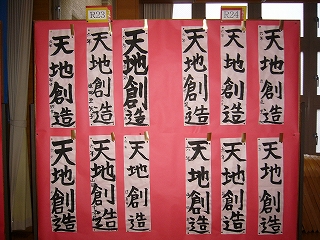 R23
R24
天地創造
天地創造
天地創造
天地創造
天地創造
天地創造
天地創造
天地創造
天地創造
天地創造
天地創造
天地創造